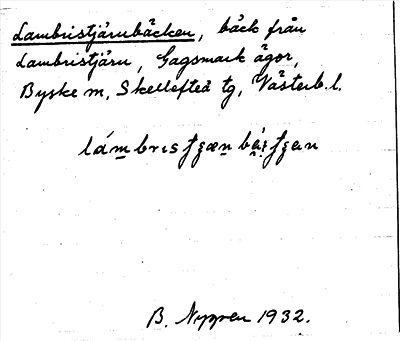 Lambristjärnbäcken, bäck från
Lambristjärn, Gagsmark ägor,
Byske m, Skellefteå tg, Västerb. l.
B. Nygren 1932.